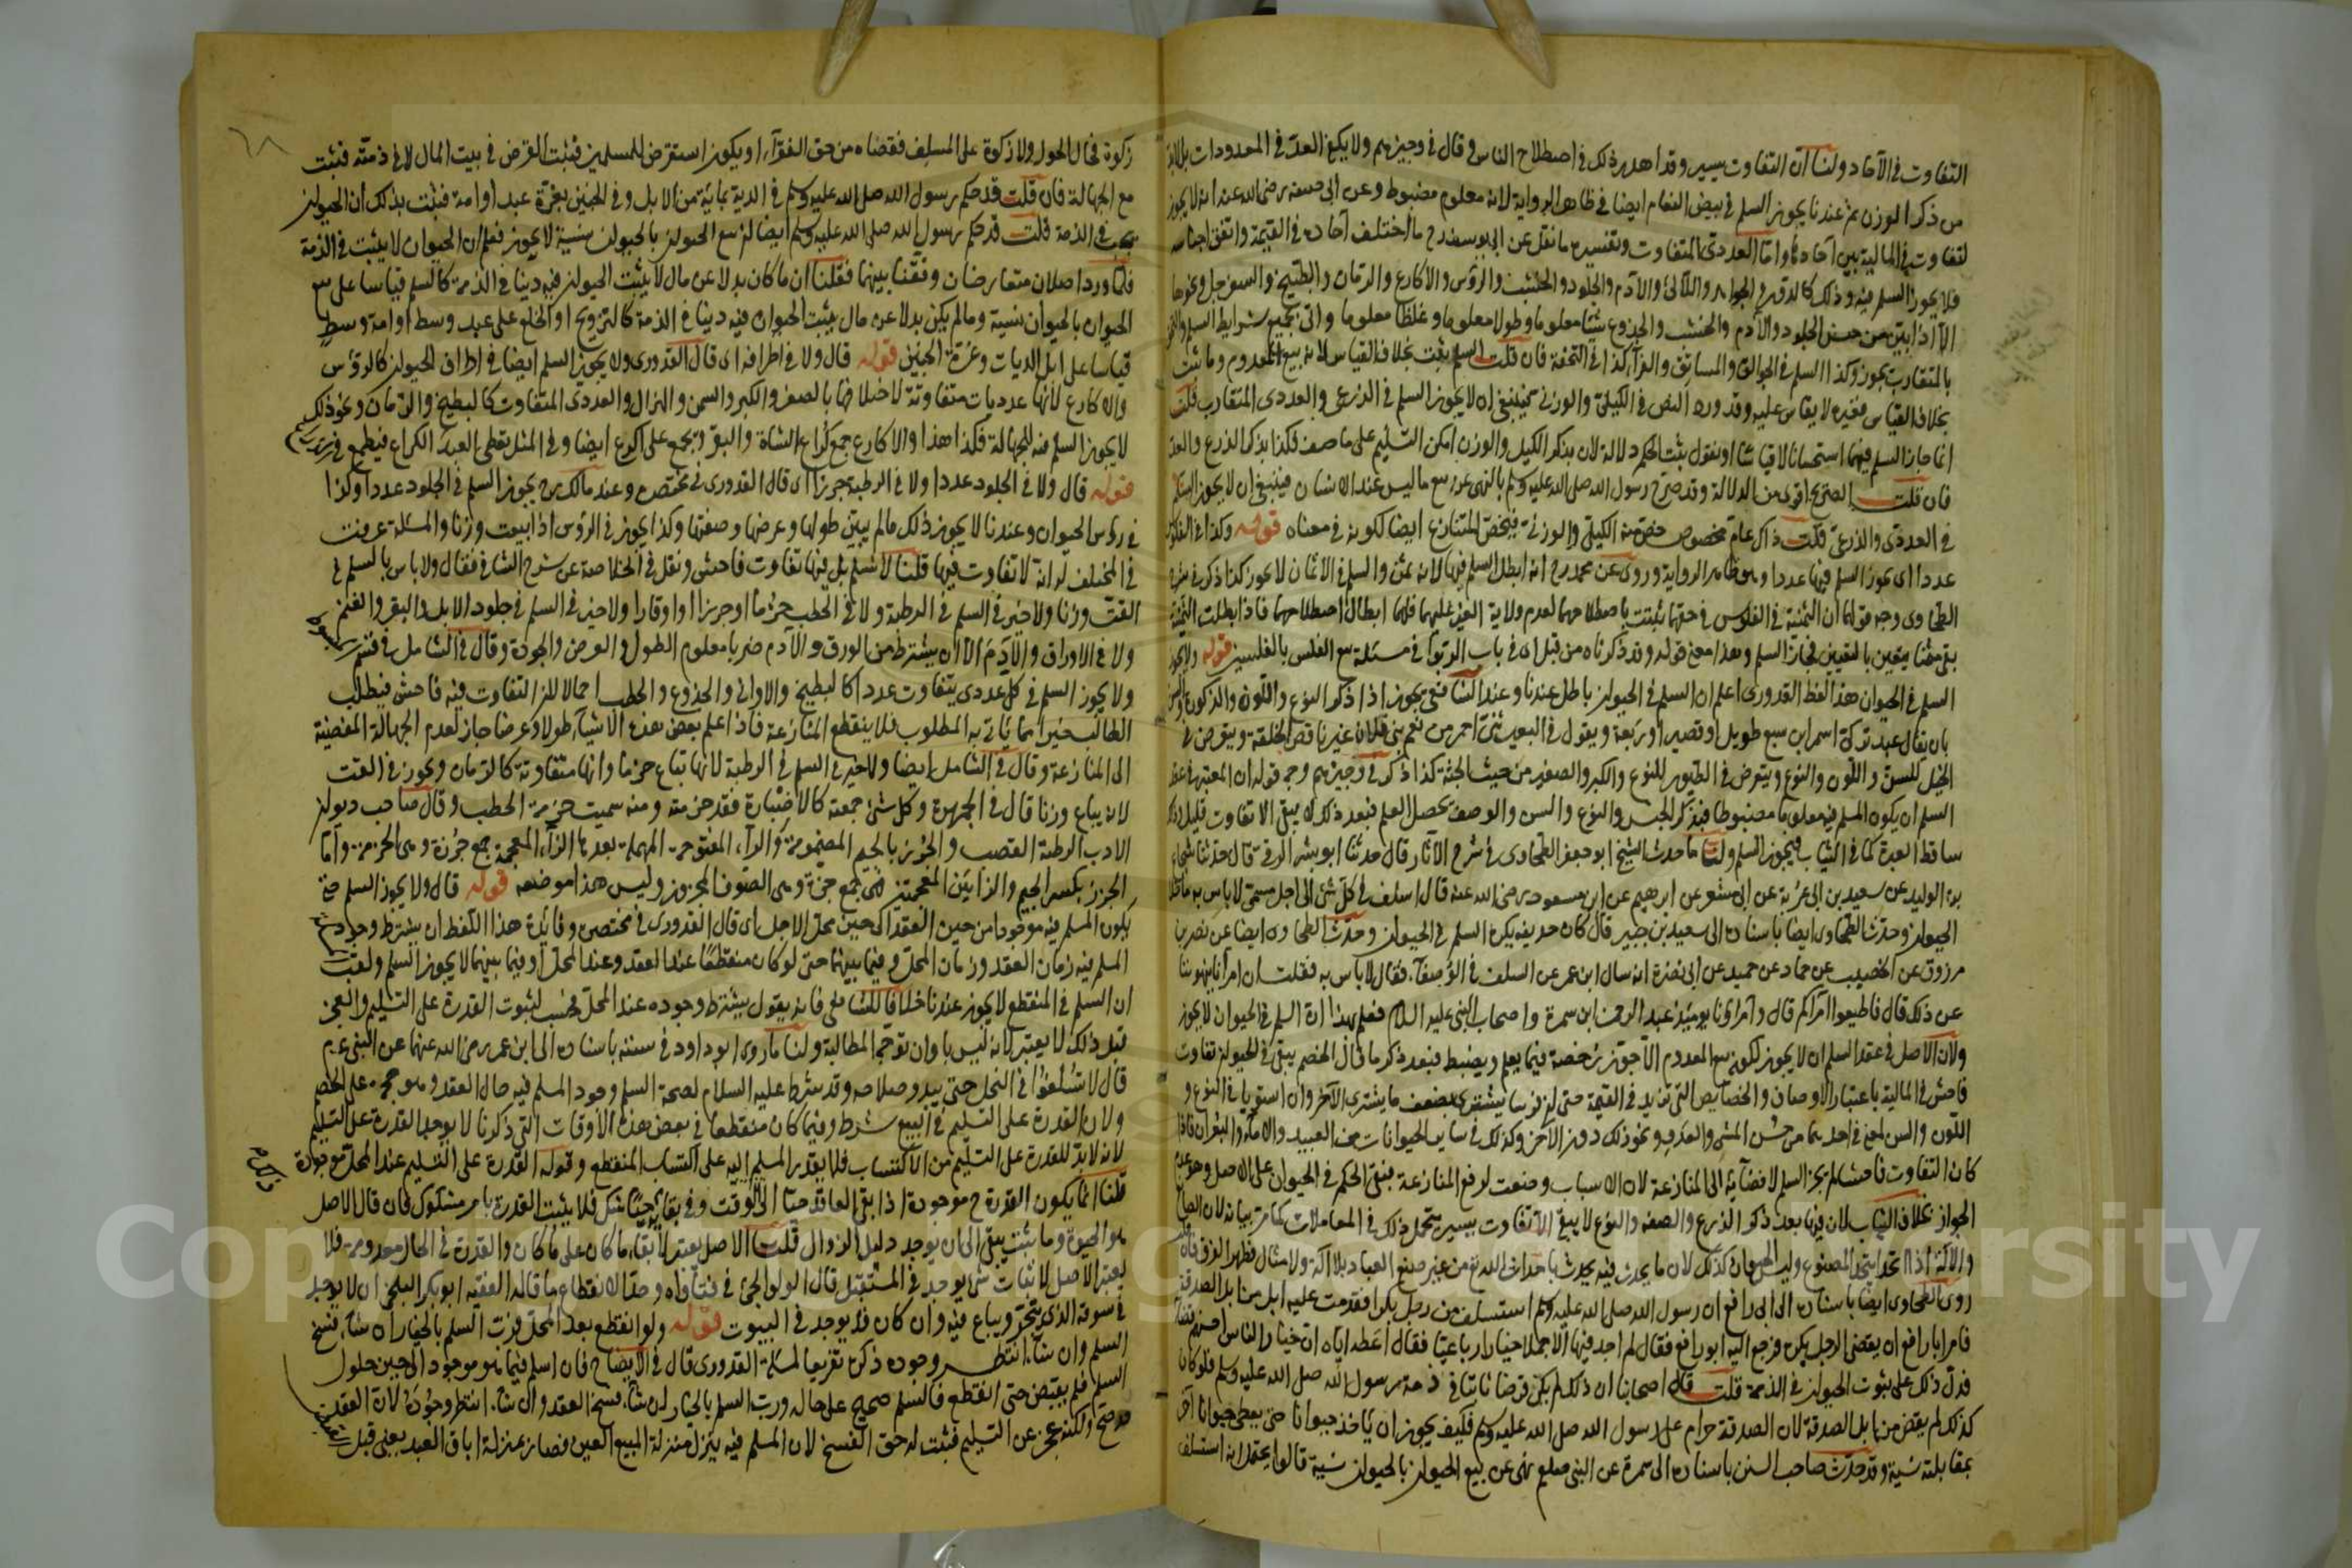 التفاوت في الآحاد ولنا ان التفاوت يسير وقد اهدر ذلك في اصطلاح الناس وقال في وجيزهم ولا يكفي العد في المعدودات بل لابد
من ذكر الوزن ثم عندنا يجوز السلم في بيض النعام ايضا في ظاهر الرواية لانه معلوم مضبوط وعن ابي حنيفة رضي الله عنه انه لا يجوز
لتفاوت في المالية بين آحادها واما العددي المتفاوت وتفسيره ما نقل عن ابي يوسف رح ما اختلف آحاده في القيمة واتفق اجناسه
فلا يجوز السلم فيه وذلك كالدور والجواهر واللآلئ والادم والجلود والخشب والرؤس والاكارع والرمان والبطيخ والسفرجل ونحوها
الا اذا بين من جنس الجلود والادم والخشب والجذوع شيئا معلوما وطولا معلوما وغلظا معلوما واتى بجميع شرايط السلم
بالمتقارب يجوز وكذا السلم في الجوالق والمسابق والفرآء كذا في التحفة فان قلت السلم يثبت بخلاف القياس لانه بيع المعدوم وما ثبت
بخلاف القياس فغيره لا يقاس عليه وقد ورد النص في الكيلي والوزني فينبغي ان لا يجوز السلم في الذرعي والعددي المتقارب قلت
انما جاز السلم فيهما استحسانا لا قياسا او نقول يثبت الحكم دلالة لان بذكر الكيل والوزن امكن التسليم على ما وصف فكذا بذكر الذرع والعد
فان قلت الصريح اقوى من الدلالة وقد صرح رسول الله صلى الله عليه وسلم بالنهي عن بيع ما ليس عند الانسان فينبغي ان لا يجوز السلم
في العددي والذرعي قلت ذاك عام مخصوص خص منه الكيلي والوزني فيخص المتنازع ايضا لكونه في معناه قوله وكذا في الفلوس
عددا اى يجوز السلم فيها عددا وهو ظاهر الرواية وروى عن محمد رح انه ابطل السلم فيها لانه ثمن والسلم في الاثمان لا يجوز كذا ذكر في شرح
الطحاوى وجه قولهما ان الثمنية في الفلوس في حقهما ثبتت باصطلاحهما لعدم ولاية الغير عليهما فلهما ابطال اصطلاحهما فاذا بطلت الثمنية
بقى مثمنا يتعين بالتعيين فجاز السلم وهذا معنى قوله وقد ذكرناه من قبل اى في باب الربوا في مسئلة بيع الفلس بالفلسين قوله ولا يجوز
السلم في الحيوان هذا لفظ القدورى اعلم ان السلم في الحيوان باطل عندنا وعند الشافعي يجوز اذا ذكر النوع واللون والذكورة والسن
بان يقال عبد تركي اسمر ابن سبع طويل او قصير او ربعة ويقول في البعير ثني احمر من نعم بني فلان غير ناقص الخلقة ويتعرض في
الخيل للسن واللون والنوع ويتعرض في الطيور للنوع والكبر والصغير من حيث الجثة كذا ذكر في وجيزهم وجه قوله ان المعتبر في عقد
السلم ان يكون المسلم فيه معلوما مضبوطا فبذكر الجنس والنوع والسن والوصف يحصل العلم فبعد ذلك لا يبقى الا تفاوت قليل وذلك
ساقط العبرة كما في الثياب فيجوز السلم ولنا ما حدث الشيخ ابو جعفر الطحاوى في شرح الآثار قال حدثنا ابو بشر الرقي قال حدثنا شجاع
بن الوليد عن سعيد بن ابي عروبة عن ابي معشر عن ابرهيم عن ابن مسعود رضي الله عنه قال اسلف في كل شئ الى اجل مسمى لا باس به ما خلا
الحيوان وحدث الطحاوى ايضا باسناده الى سعيد بن جبير قال كان حذيفة يكره السلم في الحيوان وحدث الطحاوى ايضا عن نصر بن
مرزوق عن الخصيب عن حماد عن حميد عن ابي نضرة انه سال ابن عمر عن السلف في الوصفآء فقال لا باس به فقلت ان امرآءنا ينهوننا
عن ذلك قال فاطيعوا امرآكم قال وامرآؤنا يومئذ عبد الرحمن ابن سمرة واصحاب النبي عليه السلام فعلم بهذا ان السلم في الحيوان لا يجوز
ولان الاصل في عقد السلم ان لا يجوز لكونه بيع المعدوم الا جوز رخصة فيما يعلم ويضبط فبعد ذكر ما قال الخصم يبقى في الحيوان تفاوت
فاحش في المالية باعتبار الاوصاف والخصايص التي تزيد في القيمة حتى ان فرسا يشترى بضعف ما يشترى الآخر وان استويا في النوع و
اللون والسن لمعنى في احدهما من حسن المشي والعدو ونحو ذلك دون الآخر وكذلك في ساير الحيوانات من العبيد والاماء والبعران فاذا
كان التفاوت فاحشا لم يجز السلم لافضآئه الى المنازعة لان الاسباب وضعت لرفع المنازعة فبقي الحكم في الحيوان على الاصل وهو عدم
الجواز بخلاف الثياب لان فيها بعد ذكر الذرع والصفة والنوع لا يبقى الا تفاوت يسير يتحمل ذلك في المعاملات كما مر بيانه لان الصانع
والآلة اذا اتحدا يتحد المصنوع وليس الحيوان كذلك لان ما يحدث فيه يحدث باحداث الله تع من غير صنع العباد بلا آلة ولا مثال فظهر الفرق فان قلت
روى الطحاوى ايضا باسناده الى ابي رافع ان رسول الله صلى الله عليه وسلم استسلف من رجل بكرا فقدمت عليه ابل من ابل الصدقة
فامر ابا رافع ان يقضي الرجل بكره فرجع اليه ابو رافع فقال لم اجد فيها الا جملا خيارا رباعيا فقال اعطه اياه ان خيار الناس احسنهم قضاء
فدل ذلك على ثبوت الحيوان في الذمة قلت قال اصحابنا ان ذلك لم يكن قرضا ثابتا في ذمة رسول الله صلى الله عليه وسلم فلو كان
كذلك لم يقض من ابل الصدقة لان الصدقة حرام على رسول الله صلى الله عليه وسلم فكيف يجوز ان ياخذ حيوانا حتى يعطي حيوانا آخر
بمقابلته نسية وقد حدث صاحب السنن باسناده الى سمرة عن النبي صلعم نهى عن بيع الحيوان بالحيوان نسية قالوا يحتمل انه استسلف
زكوة فحال الحول ولا زكوة على المسلف فقضاه من حق الفقرآء او يكون استقرض للمسلمين فثبت القرض في بيت المال لا في ذمته فثبت
مع الجهالة فان قلت قد حكم رسول الله صلى الله عليه وسلم في الدية بمائة من الابل وفي الجنين بغرة عبد او امة فثبت بذلك ان الحيوان
يجب في الذمة قلت قد حكم رسول الله صلى الله عليه وسلم ايضا ان بيع الحيوان بالحيوان نسية لا يجوز فعلم ان الحيوان لا يثبت في الذمة
فلما ورد اصلان متعارضان وفقنا بينهما فقلنا ان ما كان بدلا عن مال لا يثبت الحيوان فيه دينا في الذمة كالسلم قياسا على بيع
الحيوان بالحيوان نسية وما لم يكن بدلا عن مال يثبت الحيوان فيه دينا في الذمة كالتزويج او الخلع على عبد وسط او امة وسط
قياسا على ابل الديات وغرة الجنين قوله قال ولا في اطرافه اى قال القدورى ولا يجوز السلم ايضا في اطراف الحيوان كالرؤس
والاكارع لانها عدديات متفاوتة لاختلافها بالصغر والكبر والسمن والهزال والعددى المتفاوت كالبطيخ والرمان ونحو ذلك
لا يجوز السلم فيه للجهالة فكذا هذا والاكارع جمع كراع الشاة والبقر ويجمع على اكرع ايضا وفي المثل يعطى العبد الكراع فيطمع في
قوله قال ولا في الجلود عددا ولا في الرطبة جرزا اى قال القدورى في مختصره وعند مالك رح يجوز السلم في الجلود عددا وكذا
في رؤس الحيوان وعندنا لا يجوز ذلك ما لم يبين طولها وعرضها وصفتها وكذا يجوز في الرؤس اذا بيعت وزنا والمسئلة عرفت
في المختلف له انه لا تفاوت فيها قلنا لا نسلم بل فيها تفاوت فاحش ونقل في الخلاصة عن شرح الشافي فقال ولا باس بالسلم في
القت وزنا ولا خير في السلم في الرطبة ولا في الحطب حزما او جرزا او اوقارا ولا خير في السلم في جلود الابل والبقر والغنم
ولا في الاوراق والادم الا ان يشترط من الورق والادم ضربا معلوم الطول والعرض والجودة وقال في الشامل في قسم
ولا يجوز السلم في كل عددى يتفاوت عددا كالبطيخ والاوانى والجذوع والحطب احمالا لان التفاوت فيه فاحش فيطلب
الطالب خيرا مما ياتى به المطلوب فلا ينقطع المنازعة فاذا اعلم بعض هذه الاشيآء طولا وعرضا جاز لعدم الجهالة المفضية
الى المنازعة وقال في الشامل ايضا ولا خير في السلم في الرطبة لانها تباع حزما وانها متفاوتة كالرمان ويجوز في القت
لانه يباع وزنا قال في الجمهرة وكل شئ جمعته كالاضبارة فقد حزمته ومنه سميت حزمة الحطب وقال صاحب ديوان
الادب الرطبة القصب والجرز بالجيم المضمومة والرآء المفتوحة المهملة بعدها الزآء المعجمة جمع جرزة وهى الحزمة واما
الجزز بكسر الجيم والزايين المعجمتين فهى جمع جزة وهى الصوف المجزوز وليس هذا موضعه قوله قال ولا يجوز السلم حتى
يكون المسلم فيه موجودا من حين العقد الى حين محل الاجل اى قال القدورى في مختصره وفايدة هذا اللفظ ان يشترط وجود
المسلم فيه زمان العقد وزمان المحل وفيما بينهما حتى لو كان منقطعا عند العقد وعند المحل او فيما بينهما لا يجوز السلم ولقب
ان السلم في المنقطع لا يجوز عندنا خلافا للشافعي فانه يقول يشترط وجوده عند المحل فحسب لثبوت القدرة على التسليم والعجز
قبل ذلك لا يعتبر لانه ليس باوان توجه المطالبة ولنا ما روى ابو داود في سننه باسناده الى ابن عمر رضي الله عنهما عن النبي ع م
قال لا تسلفوا في النخل حتى يبدو صلاحه وقد شرط عليه السلام لصحة السلم وجود المسلم فيه حال العقد وهو حجة على الخصم
ولان القدرة على التسليم في البيع شرط وفيما كان منقطعا في بعض هذه الاوقات التي ذكرنا لا يوجد القدرة على التسليم
لانه لا بد للقدرة على التسليم من الاكتساب فلا يقدر المسلم اليه على اكتساب المنقطع وقوله القدرة على التسليم عند المحل موجودة
قلنا انما يكون القدرة ح موجودة اذا بقى العاقد حيا الى الوقت وفي بقائه حيا شك فلا يثبت القدرة بامر مشكوك فان قال الاصل
هو الحيوة وما ثبت يبقى الى ان يوجد دليل الزوال قلت الاصل يعتبر لابقاء ما كان على ما كان والقدرة في الحال معدومة فلا
يعتبر الاصل لاثبات شئ يوجد في المستقبل قال الولوالجي في فتاواه وحد الانقطاع ما قاله الفقيه ابو بكر البلخي ان لا يوجد
في سوقه الذى يتجر ويباع فيه وان كان قد يوجد في البيوت قوله ولو انقطع بعد المحل فرب السلم بالخيار ان شآء فسخ
السلم وان شآء انتظر وجوده ذكره تفريعا لمسئلة القدورى قال في الايضاح فان اسلم فيما هو موجود الى حين حلول
السلم فلم يقبض حتى انقطع فالسلم صحيح على حاله ورب السلم بالخيار ان شآء فسخ العقد وان شآء انتظر وجوده لان العقد
قد صح ولكنه عجز عن التسليم فثبت له حق الفسخ لان المسلم فيه ينزل منزلة المبيع العين فصار بمنزلة اباق العبد يعني قبل